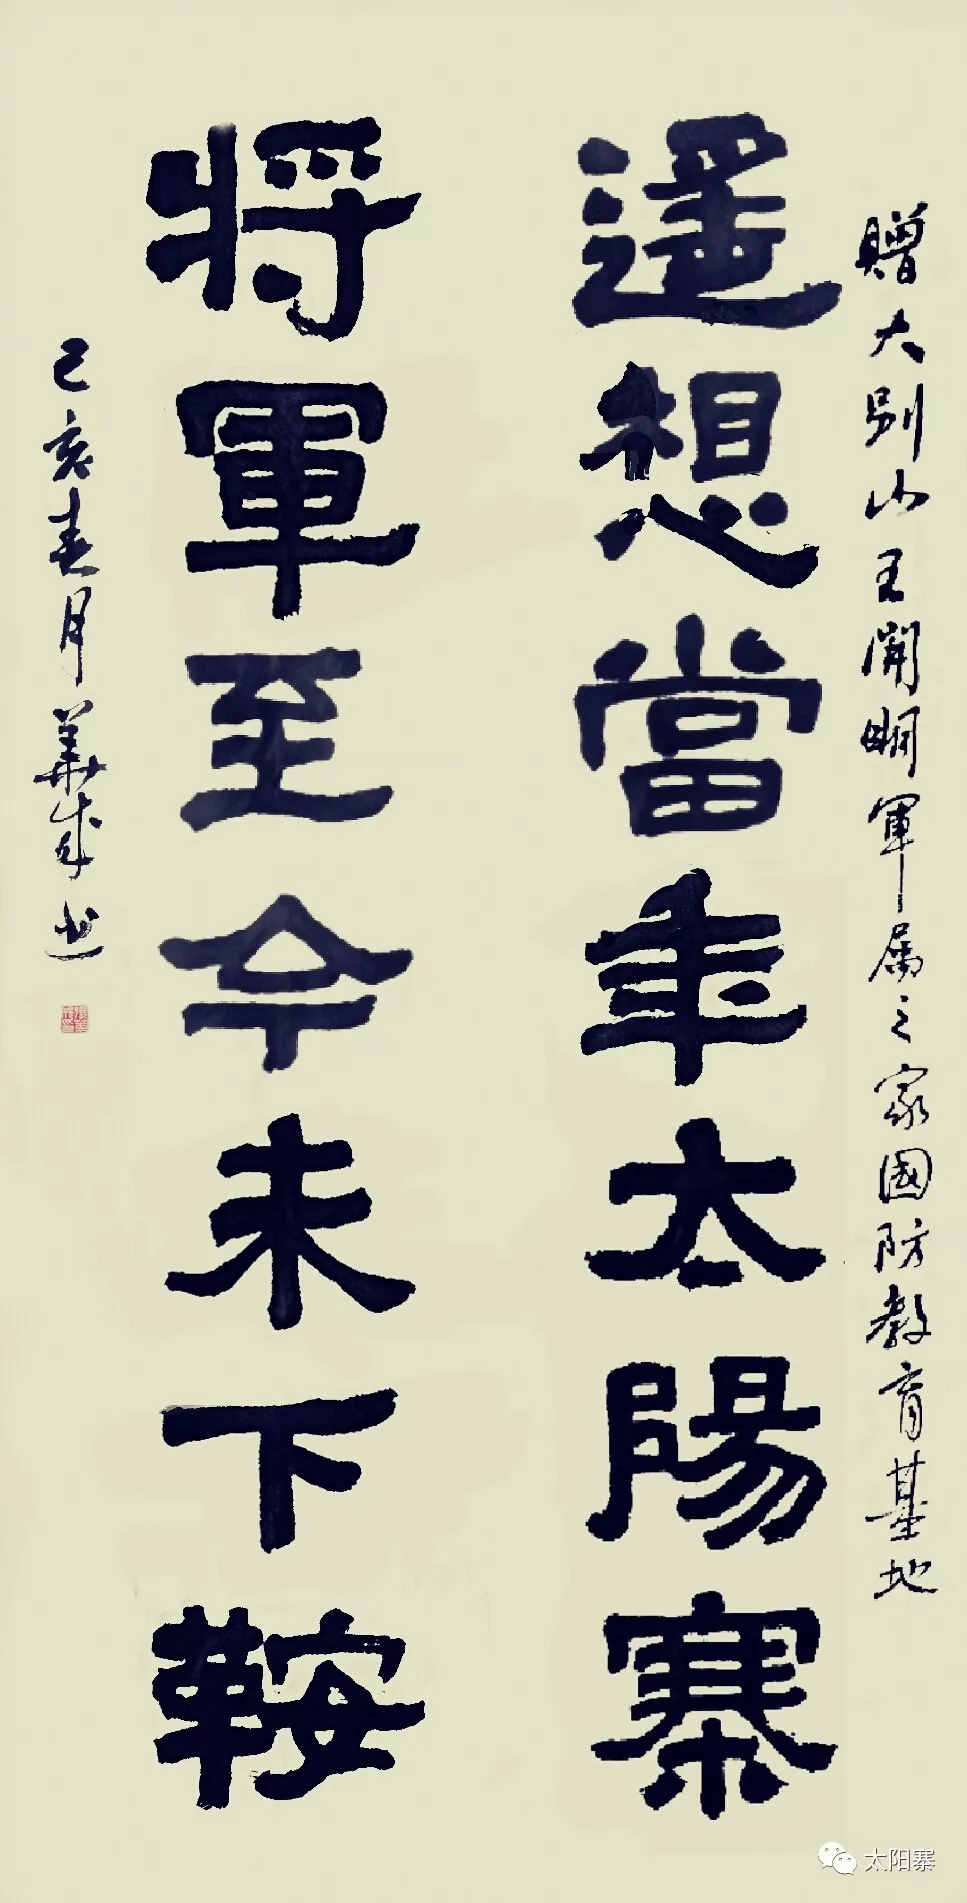 贈大別山王開軍属之家國防教育基地
遙想當年太陽寨
将軍至今未下鞍
己亥春月華成书
太阳寨